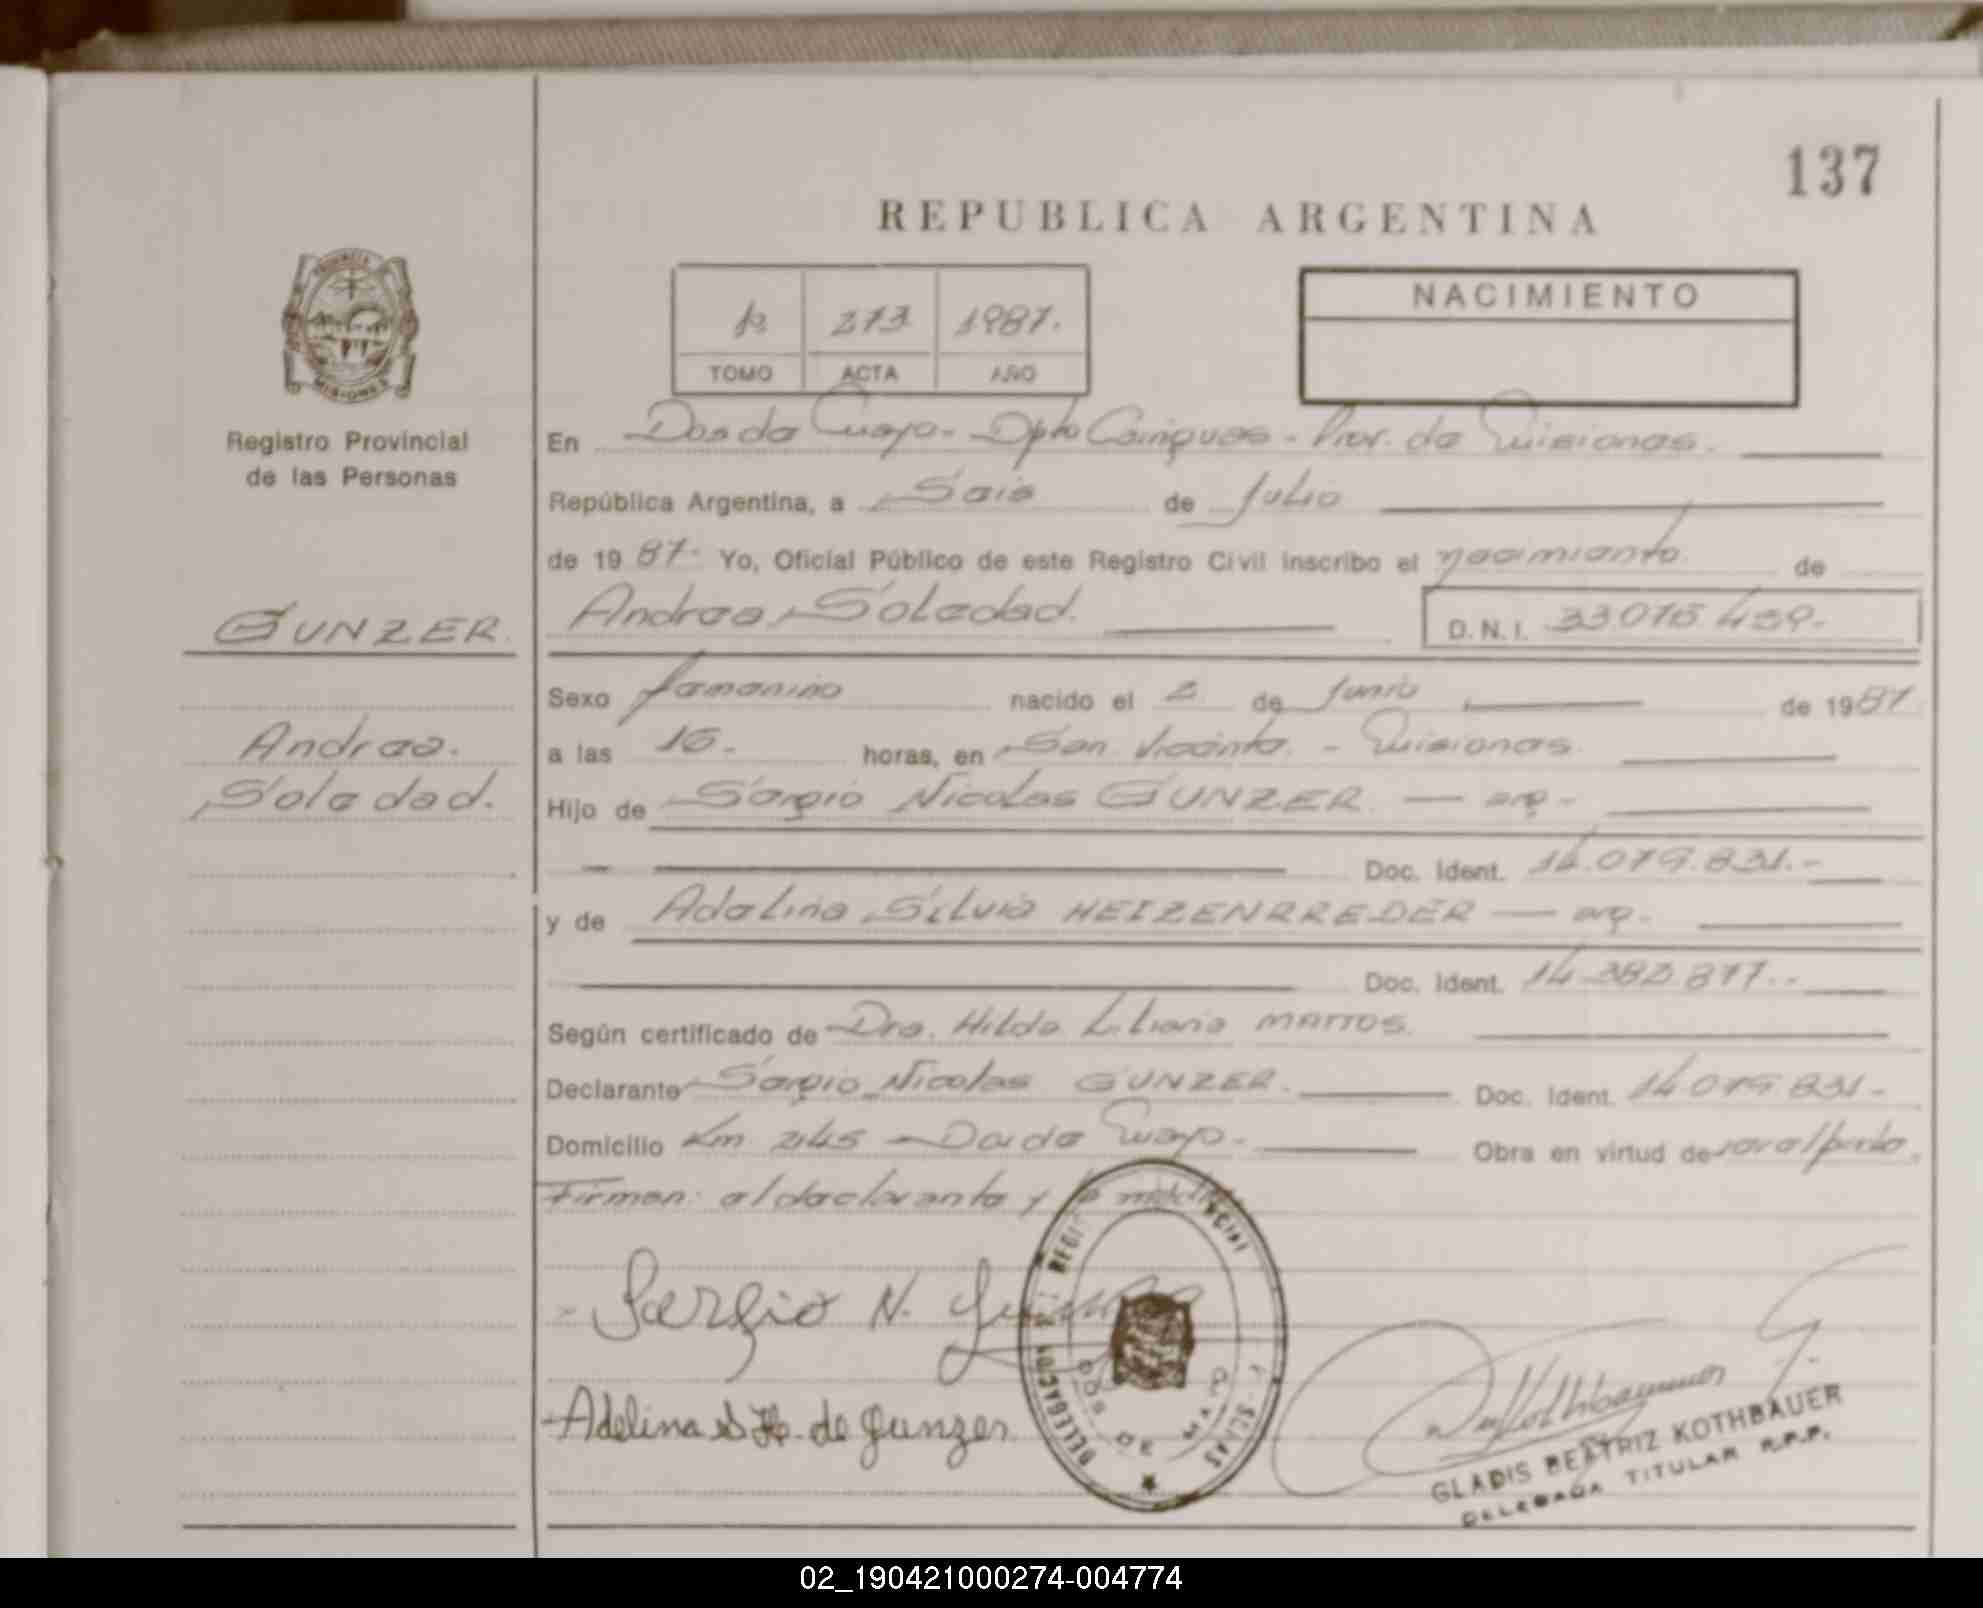 137
REPUBLICA ARGENTINA
273 1987.
TOMO ACTA AÑO
NACIMIENTO
PROVINCIA
MISIONES
Registro Provincial
de las Personas
En Dos de Mayo - Dpto Cainguas - Prov. de Misiones.
República Argentina, a Seis de Julio
de 1987. Yo, Oficial Público de este Registro Civil inscribo el nacimiento de
GUNZER Andrea Soledad. D.N.I. 33.015.459.-
Sexo femenino nacido el 2 de Junio de 1987
Andrea. a las 16. horas, en San Vicente. - Misiones.
Soledad. Hijo de Sergio Nicolas GUNZER. — arg.-
Doc. Ident. 14.079.831.-
y de Adelina Silvia HEIZENRREDER — arg.
Doc. Ident. 14.382.877.-
Según certificado de Dra. Hilda Liliana MATTOS.
Declarante Sergio Nicolas GUNZER. Doc. Ident. 14.079.831-
Domicilio Km. 245 - Dos de Mayo. Obra en virtud de
Firman: el declarante y la madre
Sergio N. Gunzer
Adelina S H. de Gunzer
DOS DE MAYO
GLADIS BEATRIZ KOTHBAUER
DELEGADA TITULAR R.P.P.
02_190421000274-004774